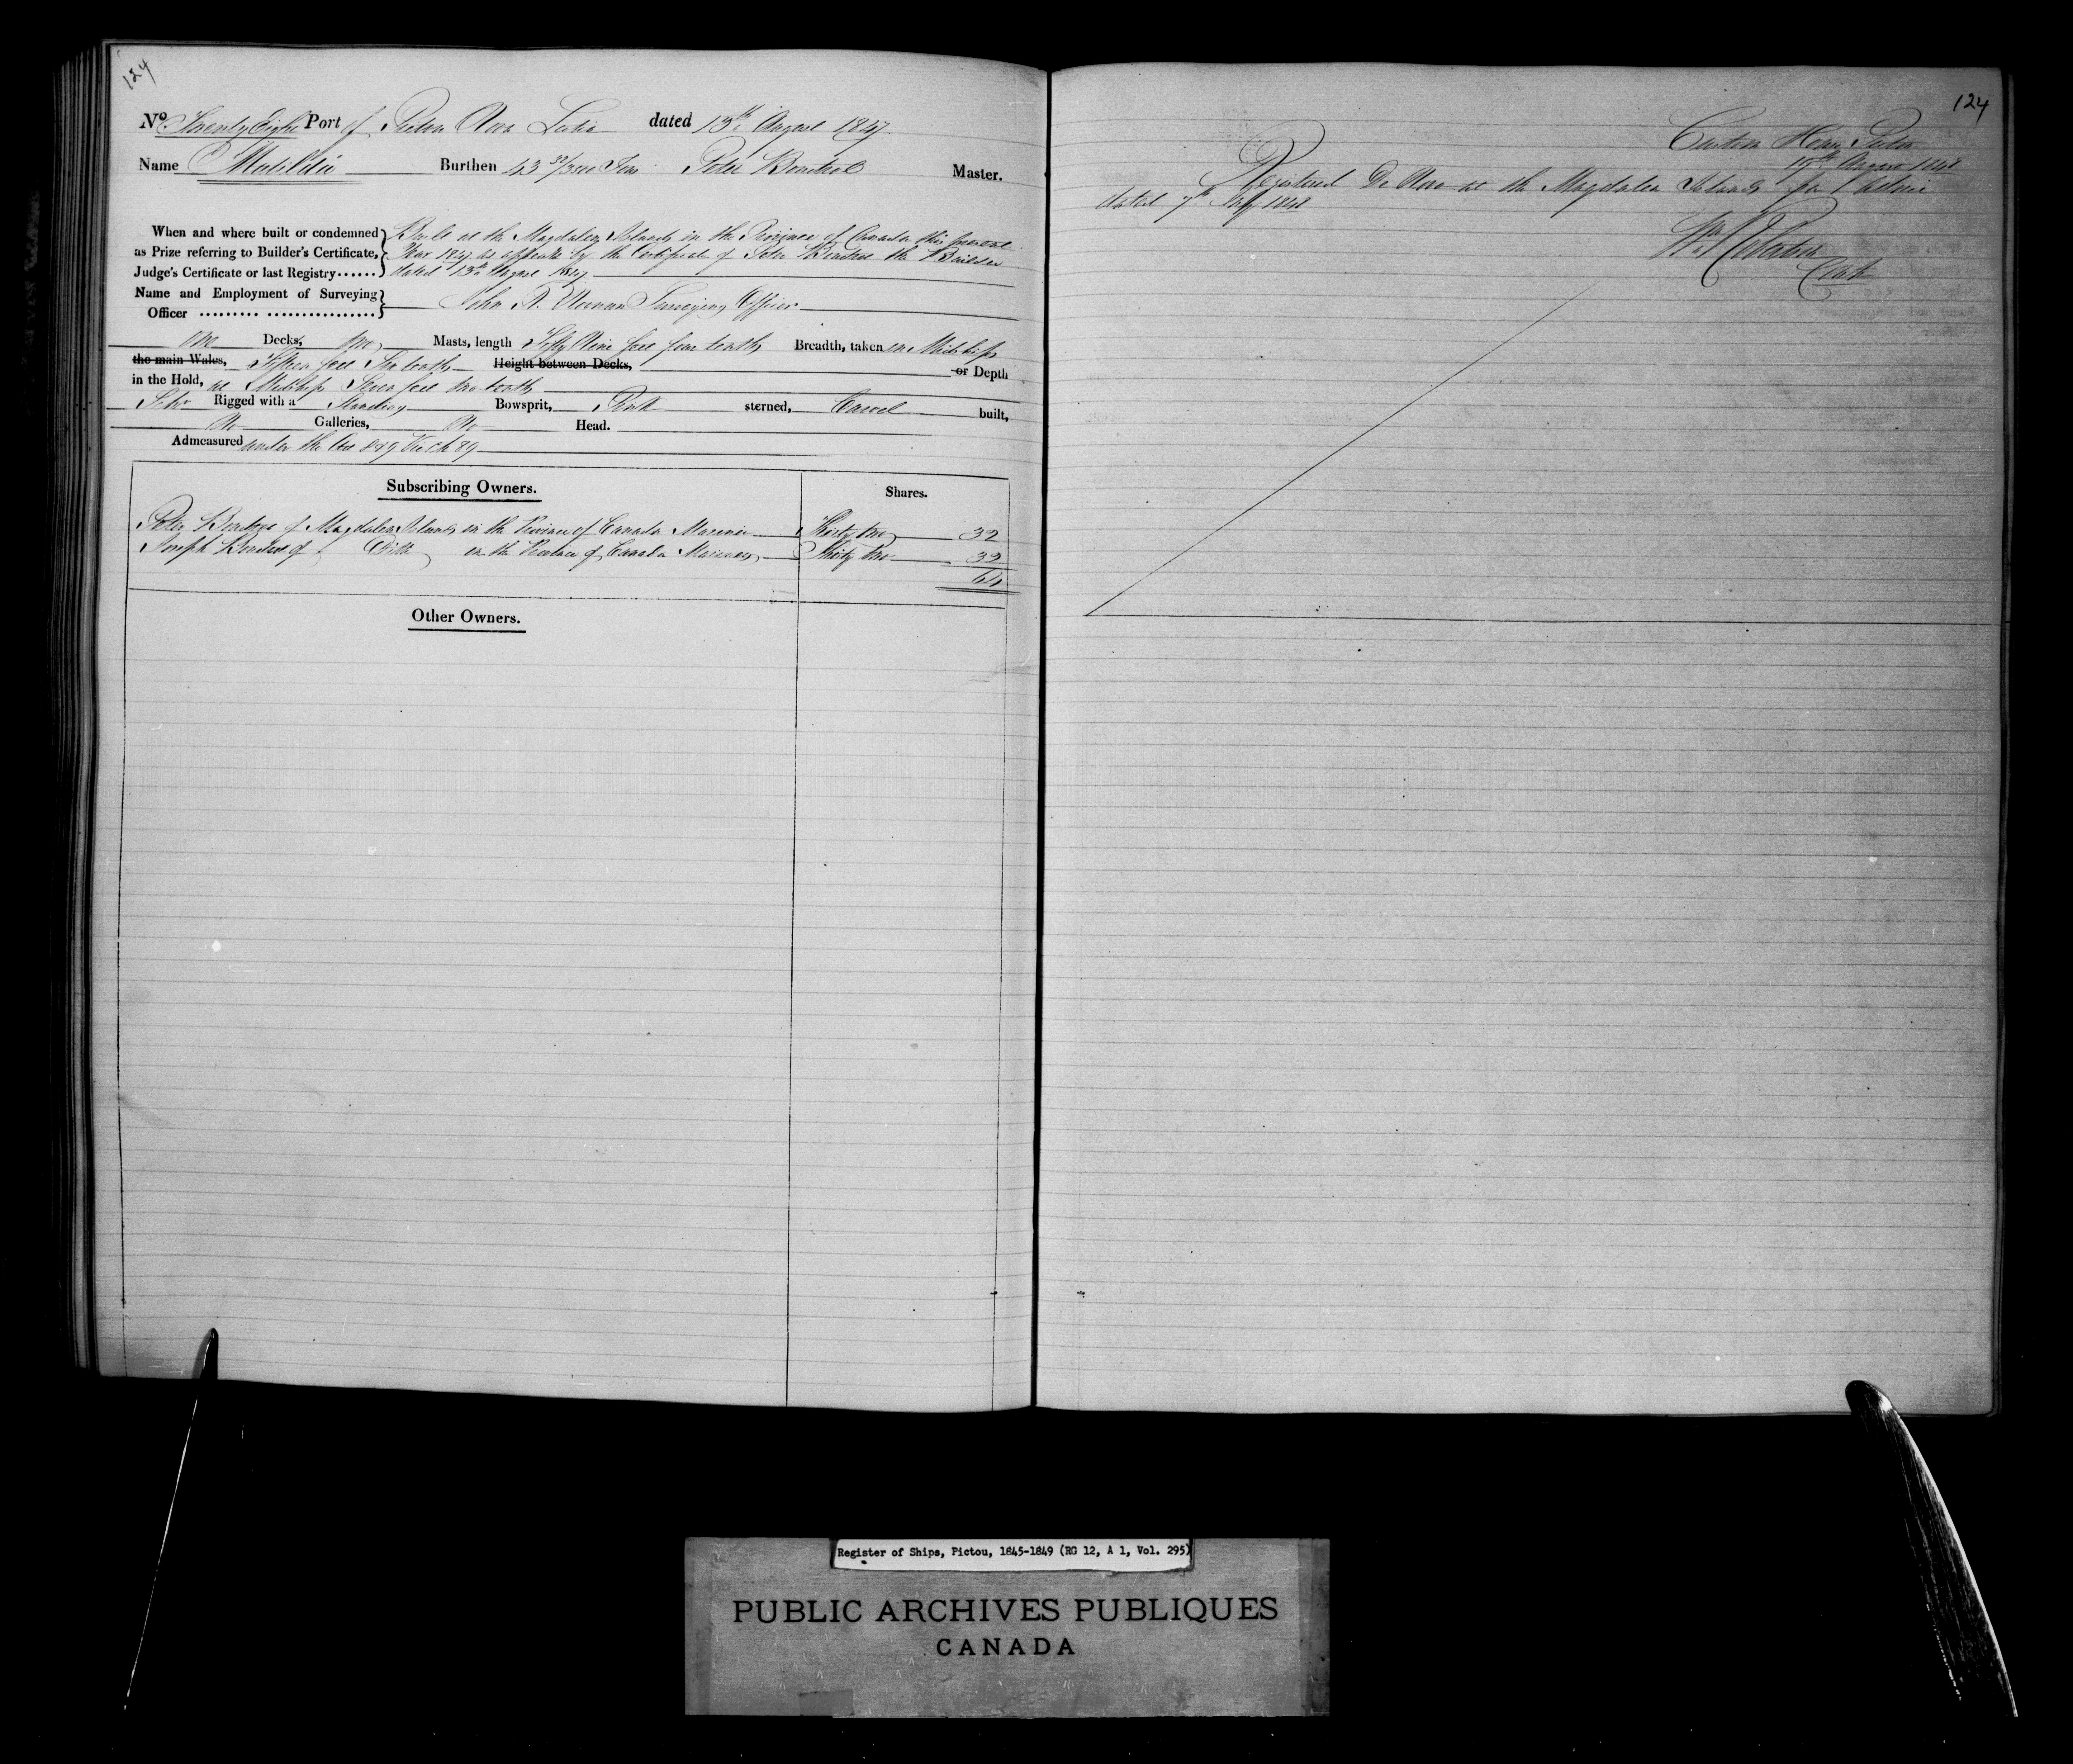 124
No Twenty Eight Port of Pictou Nova Scotia dated 13th August 1847
Name Matilda Burthen 43 Tons Peter Master.
When and where built or condemned as Prize referring to Builder's Certificate, Judge's Certificate or last Registry......
Built at the Magdalen Islands in the Province of Canada this present
Year 1847 as appears by the Certificate of Peter the Builder
dated 13th August 1847
Name and Employment of Surveying Officer ......... ................
John R. Noonan Surveying Officer
One Decks, two Masts, length Fifty Nine feet four tenths Breadth, taken in Midships
the main Wales, Fifteen feet Six tenths Height between Decks, or Depth
in the Hold, at Midships Seven feet two tenths
Schr Rigged with a Standing Bowsprit, Pink sterned, Carvel built,
No Galleries, No Head.
Admeasured under the Act 8 & 9 Vic Ch 89
Subscribing Owners. Shares.
Peter of Magdalen Islands in the Province of Canada Mariner Thirty two 32
Joseph of Ditto in the Province of Canada Mariner Thirty two 32
64
Other Owners.
124
Custom House Pictou
19th August 1848
Registered De Novo at the Magdalen Islands
dated 7th July 1848
Wm Robertson
Clerk
Register of Ships, Pictou, 1845-1849 (RG 12, A 1, Vol. 295)
PUBLIC ARCHIVES PUBLIQUES
CANADA